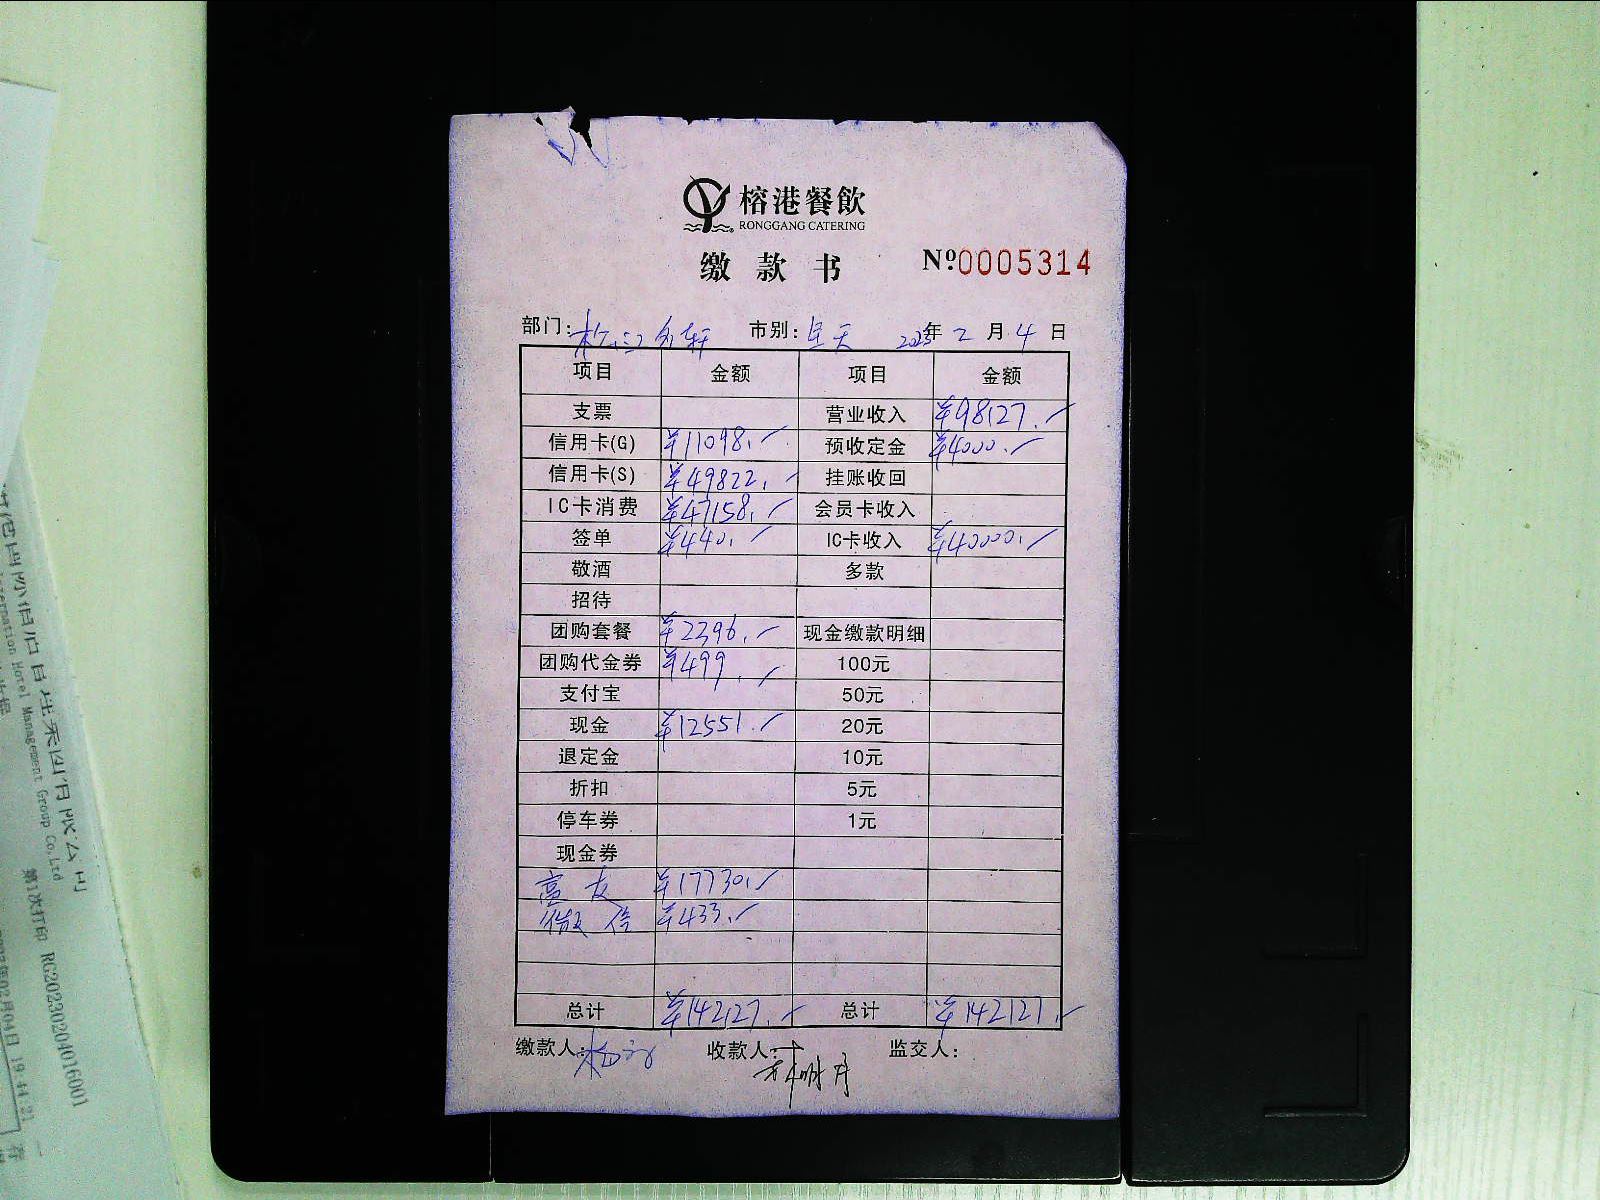 榕港餐飲
RONGGANG CATERING
缴款书 Nº0005314
部门: 市别: 天 2023年2月4日
项目 金额 项目 金额
支票 营业收入 ¥98127.
信用卡(G) ¥11098. 预收定金 ¥4000.
信用卡(S) ¥49822. 挂账收回
IC卡消费 ¥47158. 会员卡收入
签单 ¥440. IC卡收入 ¥40000.
敬酒 多款
招待
团购套餐 ¥2396. 现金缴款明细
团购代金券 ¥499. 100元
支付宝 50元
现金 ¥12551. 20元
退定金 10元
折扣 5元
停车券 1元
现金券
¥17730.
微信 ¥433.
总计 ¥142127. 总计 ¥142127.
缴款人: 收款人: 监交人:
Hotel Management Group Co,Ltd
第1次打印 RG20230204016001
02月04日 19:44:21